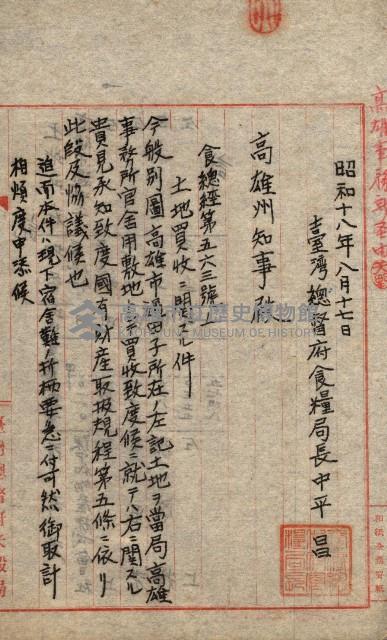 昭和十八年八月十七日
臺灣總督府食糧局長中平 昌
高雄州知事殿
食總經第五六三號
土地買收ニ關スル件
今般別圖高雄市 田子所在ノ左記土地ヲ當局高雄
事務所官舍用敷地トシテ買收致度候ニ就テハ右ニ關スル
貴見承知致度國有財產取扱規程第五條ニ依リ
此段及協議候也
追而本件ハ現下宿舍難ノ折柄要急ニ付可然御取計
相煩度申添候
高雄市歷史博物館
KAOHSIUNG MUSEUM OF HISTORY